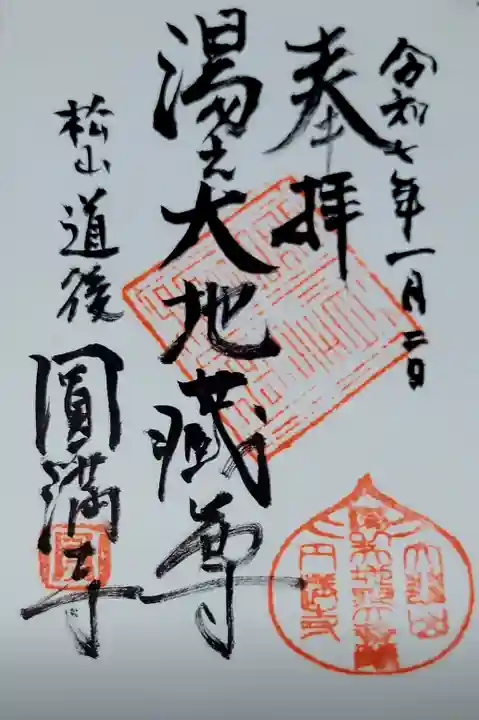 令和七年一月三日
奉拝
湯之大地蔵尊
松山道後
圓満寺